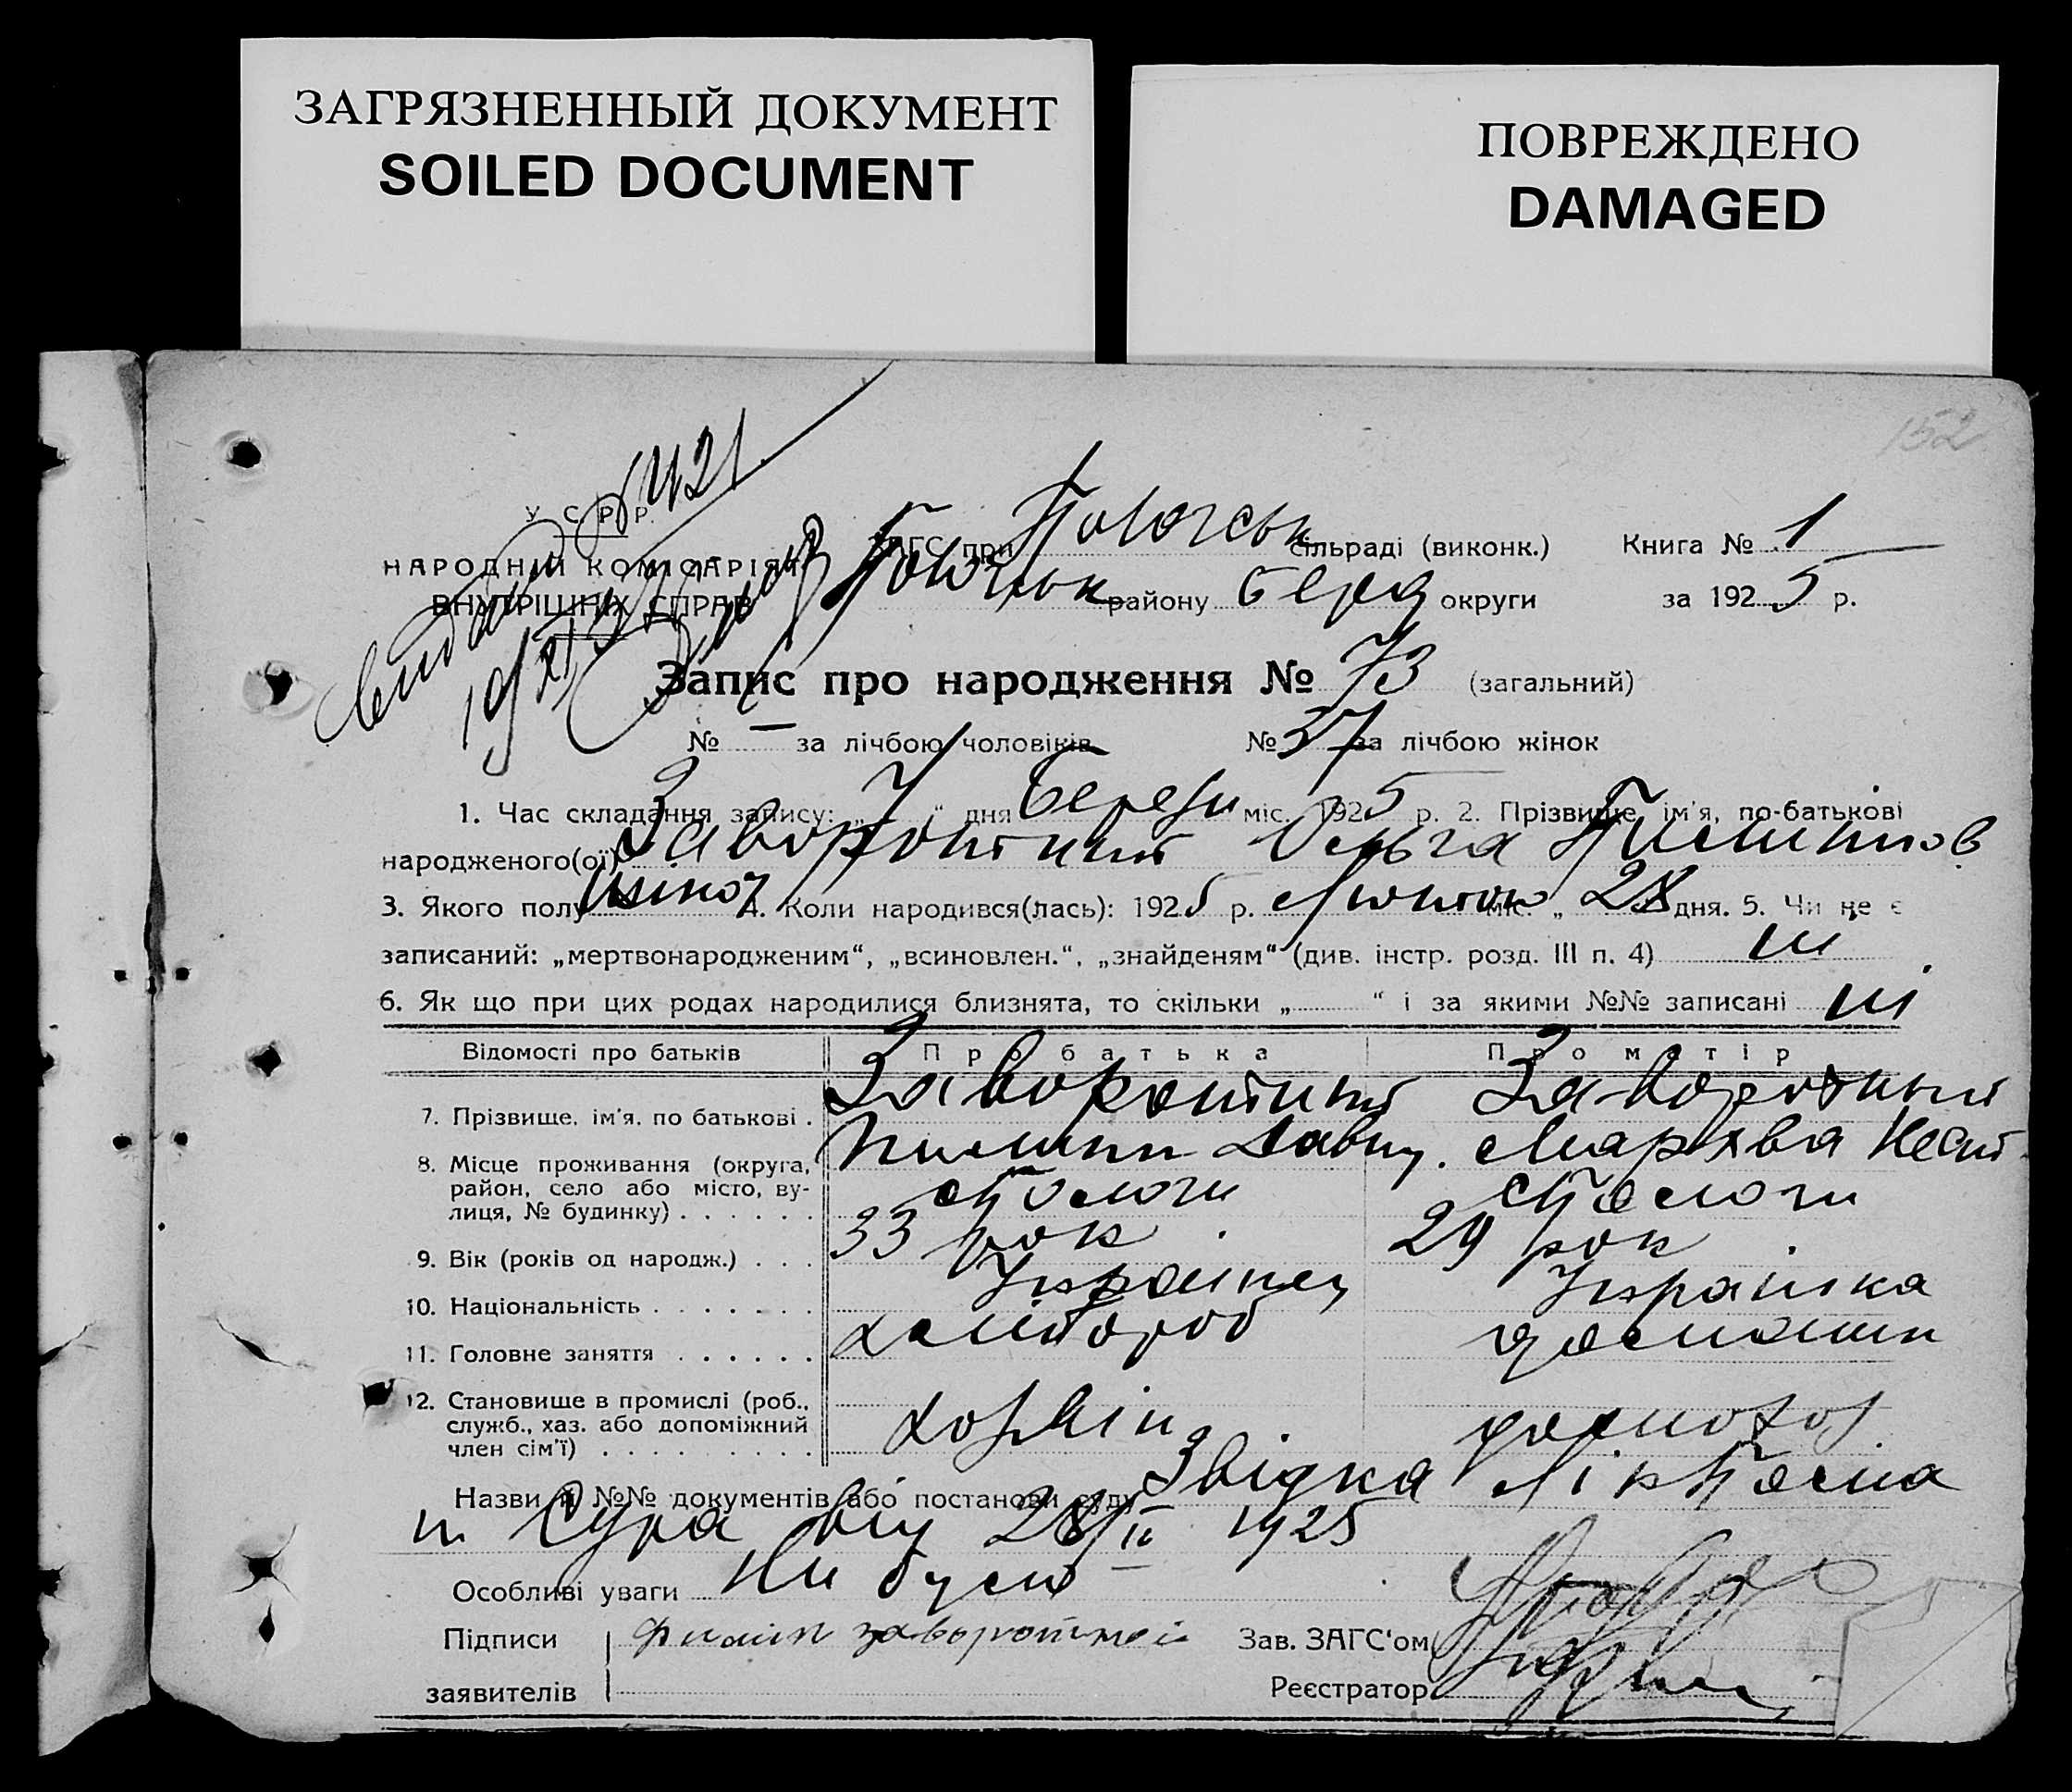 ЗАГРЯЗНЕННЫЙ ДОКУМЕНТ
SOILED DOCUMENT
ПОВРЕЖДЕНО
DAMAGED
152
№ 421
У. С. Р. Р.
НАРОДНІЙ КОМІСАРІЯТ
ВНУТРІШНІХ СПРАВ
ЗАГС при Пологськ сільраді (виконк.) Книга № 1
району Берд округи за 1925 р.
Запис про народження № 73 (загальний)
№ — за лічбою чоловіків № 37 за лічбою жінок
1. Час складання запису: „7“ дня Березн міс. 1925 р. 2. Прізвище, ім'я, по-батькові
народженого(ої) Заворотний Ольга Пилипов
3. Якого полу жіноч 4. Коли народився(лась): 1925 р. Лютого міс. „28 дня. 5. Чи не є
записаний: „мертвонародженим“, „всиновлен.“, „знайденям“ (див. інстр. розд. III п. 4) ні
6. Як що при цих родах народилися близнята, то скільки „ “ і за якими №№ записані ні
Відомості про батьків Про батька Про матір
7. Прізвище, ім'я, по батькові . Заворотний Пилип Давид. Заворотний
8. Місце проживання (округа, район, село або місто, вулиця, № будинку) . . . . . . Пологи Пологи
9. Вік (років од народж.) . . . 33 рок 29 рок
10. Національність . . . . . . . Українец Українка
11. Головне заняття . . . . . . хлібороб домашн
12. Становище в промислі (роб., служб., хаз. або допоміжний член сім'ї) . . . . . . . . . домогос
Назви й №№ документів або постанови суду Звідка
від 28/II 1925
Особливі уваги Ни було
Підписи Филип заворотной Зав. ЗАГС'ом
заявителів Реєстратор